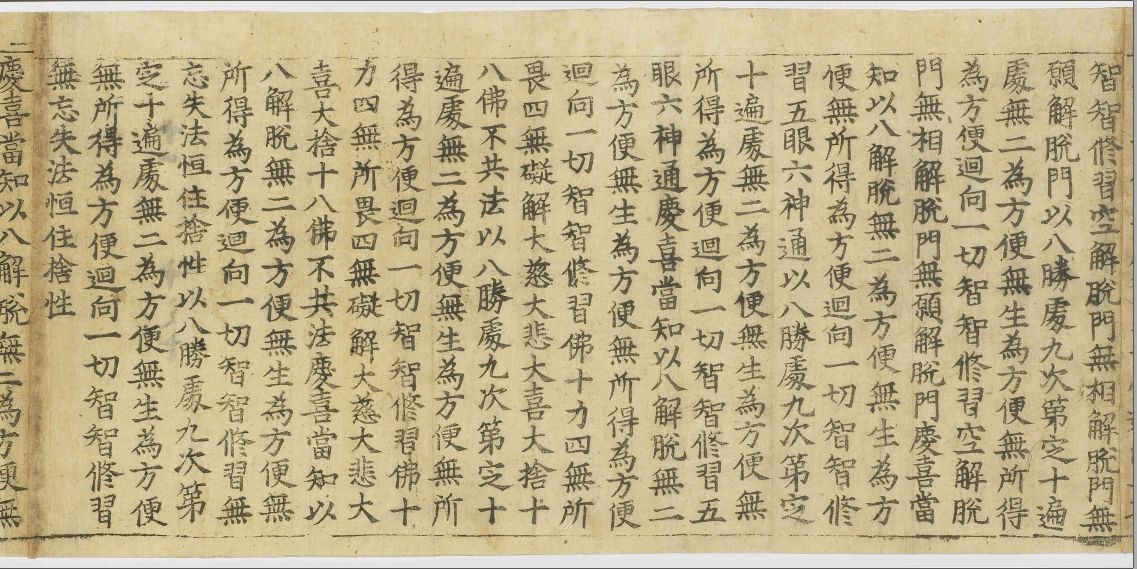 智智修習空解脫門無相解脫門無
願解脫門以八勝處九次第定十遍
處無二為方便無生為方便無所得
為方便迴向一切智智修習空解脫
門無相解脫門無願解脫門慶喜當
知以八解脫無二為方便無生為方
便無所得為方便迴向一切智智修
習五眼六神通以八勝處九次第定
十遍處無二為方便無生為方便無
所得為方便迴向一切智智修習五
眼六神通慶喜當知以八解脫無二
為方便無生為方便無所得為方便
迴向一切智智修習佛十力四無所
畏四無礙解大慈大悲大喜大捨十
八佛不共法以八勝處九次第定十
遍處無二為方便無生為方便無所
得為方便迴向一切智智修習佛十
力四無所畏四無礙解大慈大悲大
喜大捨十八佛不共法慶喜當知以
八解脫無二為方便無生為方便無
所得為方便迴向一切智智修習無
忘失法恒住捨性以八勝處九次第
定十遍處無二為方便無生為方便
無所得為方便迴向一切智智修習
無忘失法恒住捨性
慶喜當知以八解脫無二為方便無